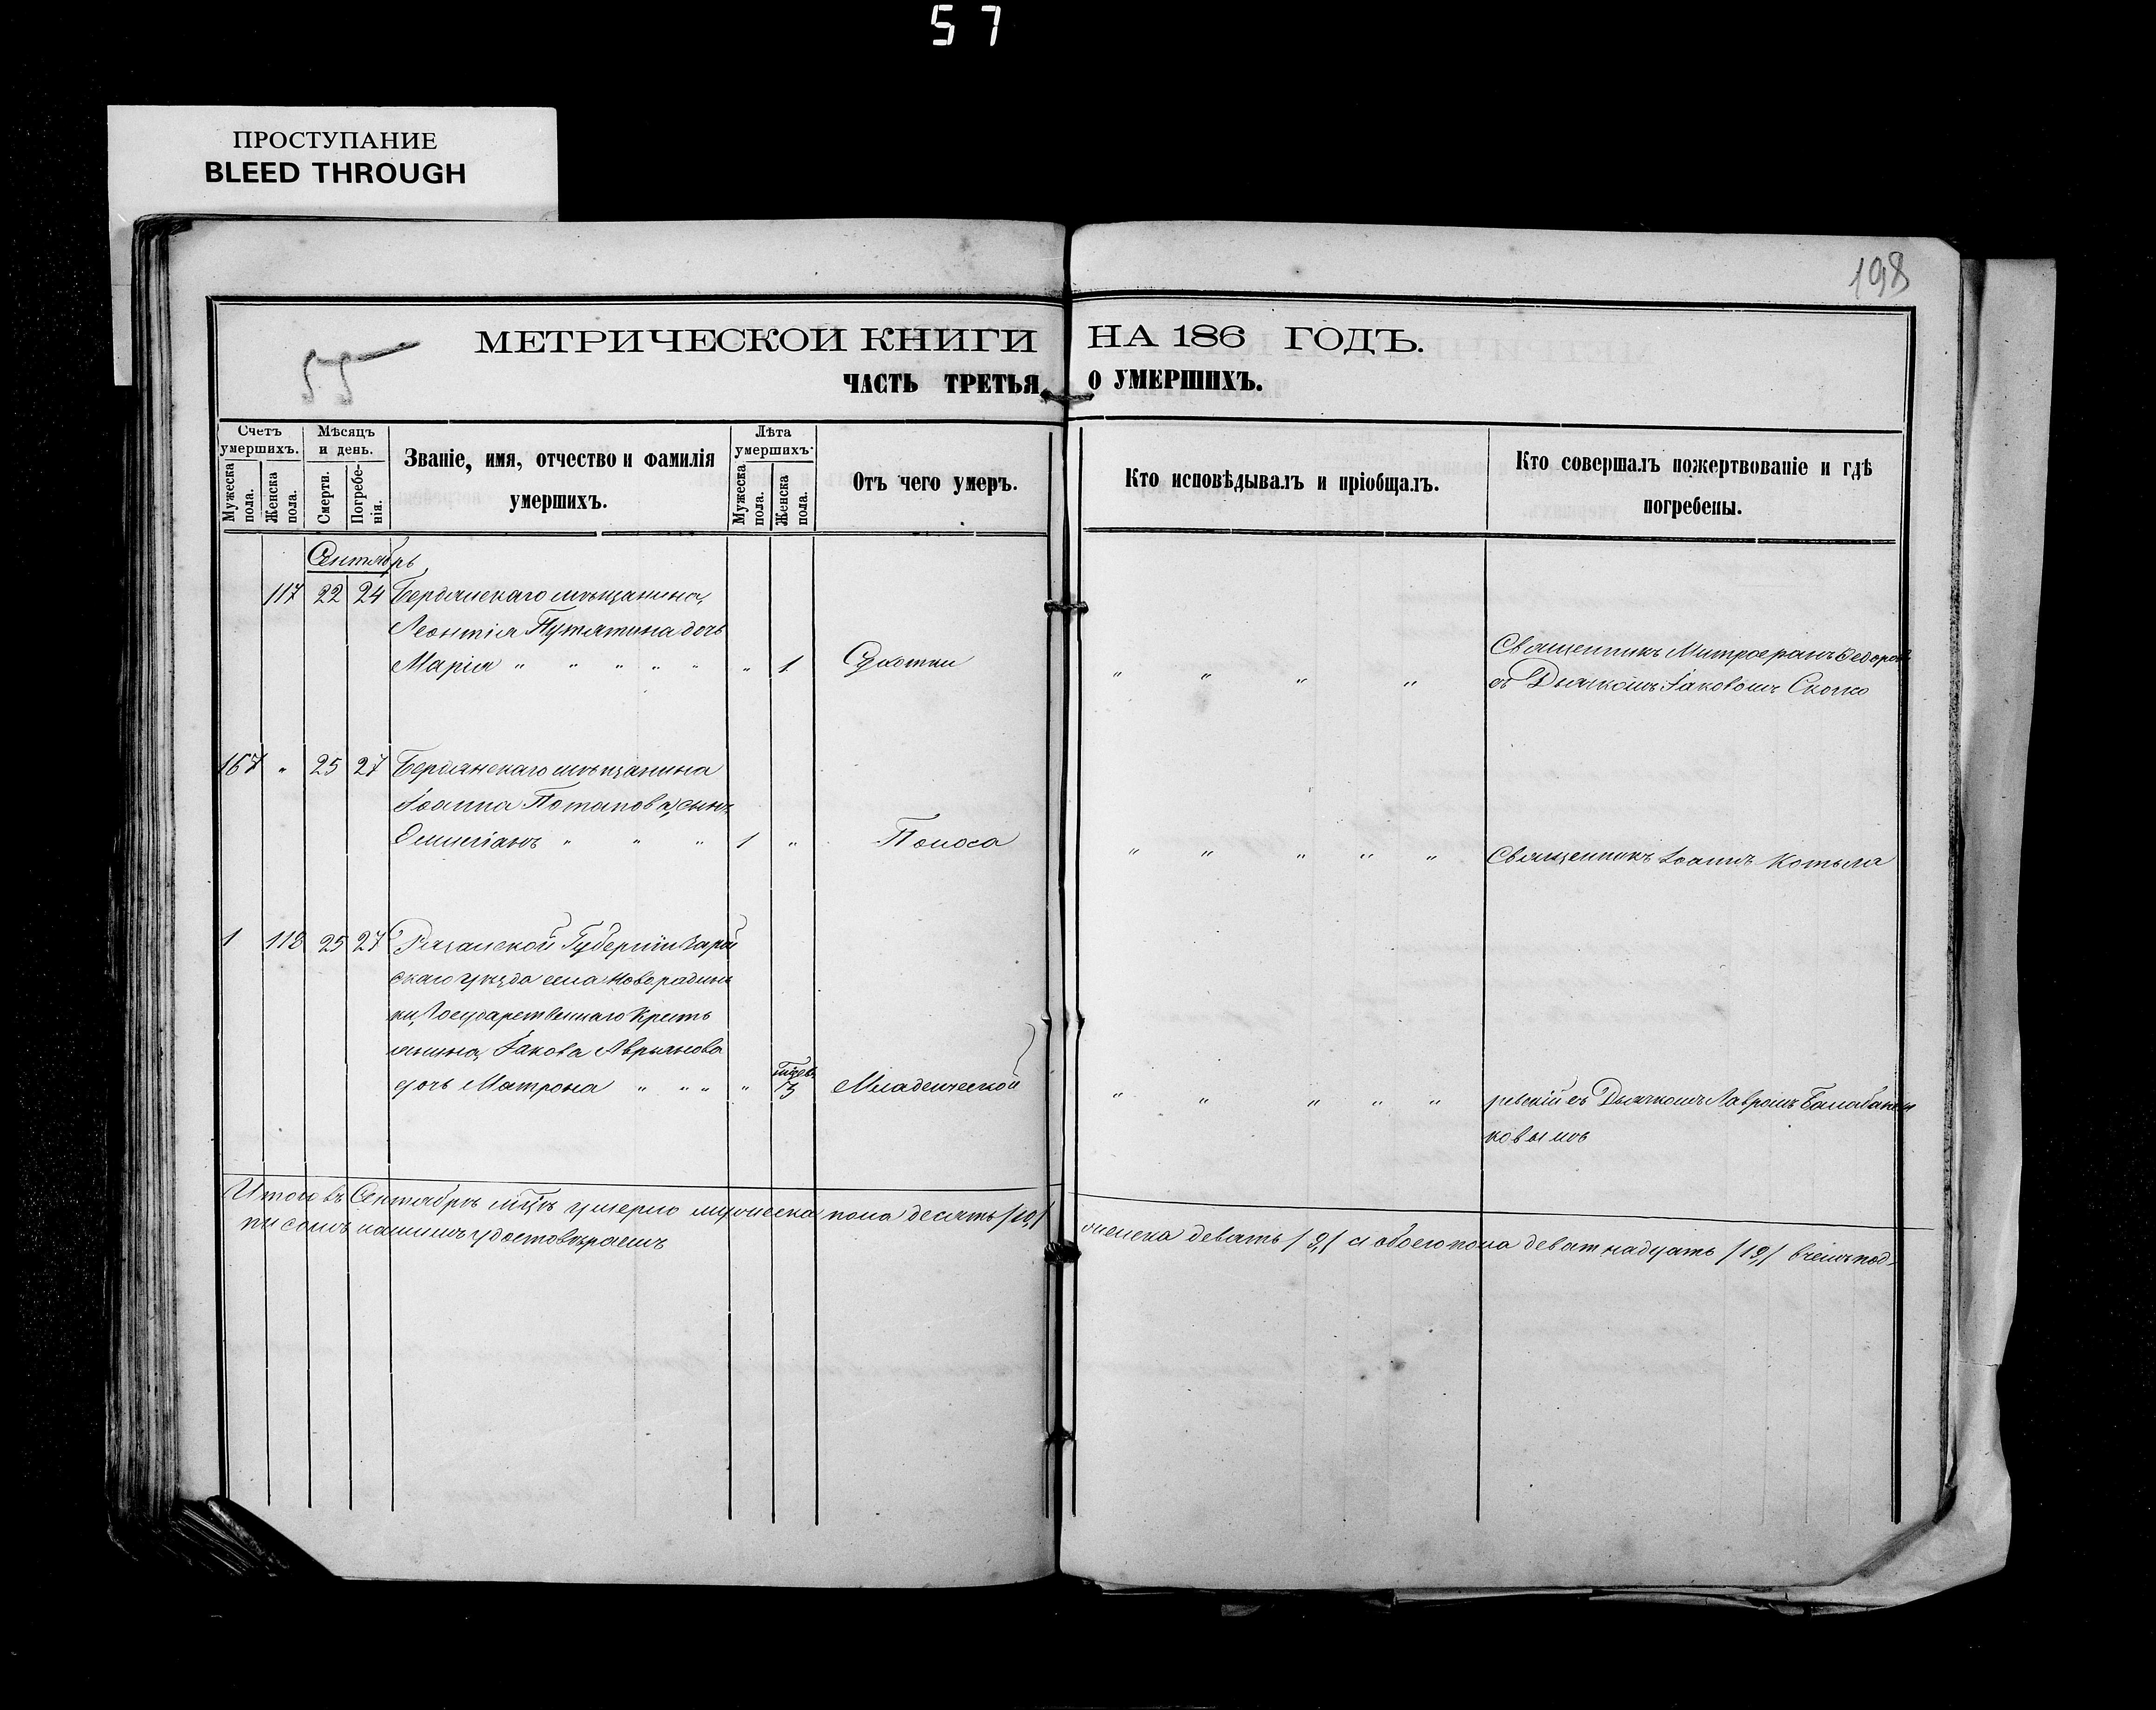 57
ПРОСТУПАНИЕ
BLEED THROUGH
198
55
МЕТРИЧЕСКОЙ КНИГИ НА 186 ГОДЪ.
ЧАСТЬ ТРЕТЬЯ, О УМЕРШИХЪ.
Счетъ умершихъ.
Мужеска пола.
Женска пола.
Мѣсяцъ и день.
Смерти.
Погребенія.
Званіе, имя, отчество и фамилія
умершихъ.
Лѣта умершихъ.
Мужеска пола.
Женска пола.
Отъ чего умеръ.
Кто исповѣдывалъ и пріобщалъ.
Кто совершалъ пожертвованіе и гдѣ
погребены.
Сентябрь
117 22 24 Бердянскаго мѣщанина,
Леонтія Путятина дочь
Марія " " " " " " 1 Сухотки
" " " "
Священникъ Митрофанъ Федоров
съ Дьячкомъ Іаковомъ Скопо
167 " 25 27 Бердянскаго мѣщанина
Іоанна Потапова, сынъ
" " " 1 " Поноса
" " " " "
Священникъ Іоаннъ Котыла
1 118 25 27 Рязанской Губерніи Зарай
скаго уѣзда села
Государственнаго Кресть
янина, Іакова Аврыянова
дочь Матрона " " " " 3 Младенческой
" " " " "
ревскій съ Дьячкомъ Лавромъ Балабанен
ковымъ
Итого въ Сентябрѣ мцѣ умерло мужеска пола десять /10,/ женска девять /9,/ а обоего пола девятнадцать /19,/ въ чемъ под-
писомъ нашимъ удостовѣряемъ